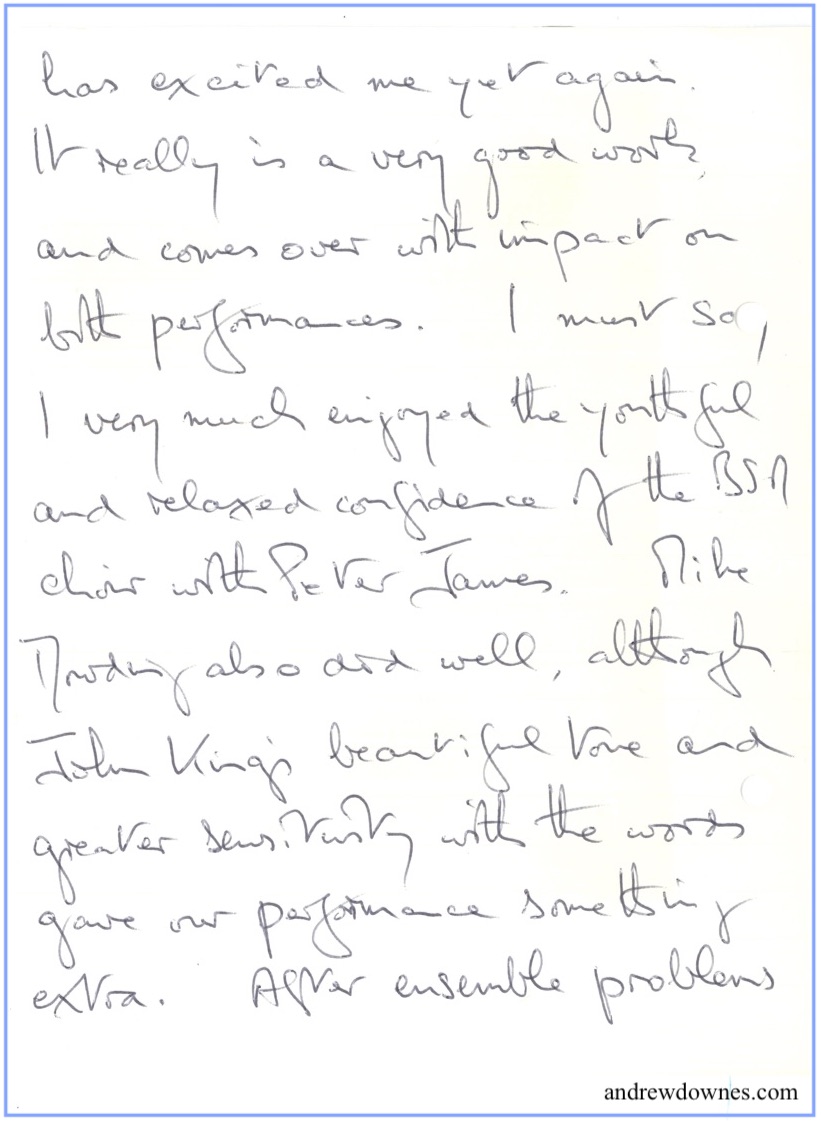 has excited me yet again.
It really is a very good work,
and comes over with impact on
both performances. I must say,
I very much enjoyed the youthful
and relaxed confidence of the BSM
choir with Peter James. Mike
also did well, although
John King's beautiful tone and
greater sensitivity with the words
gave our performance something
extra. After ensemble problems
andrewdownes.com